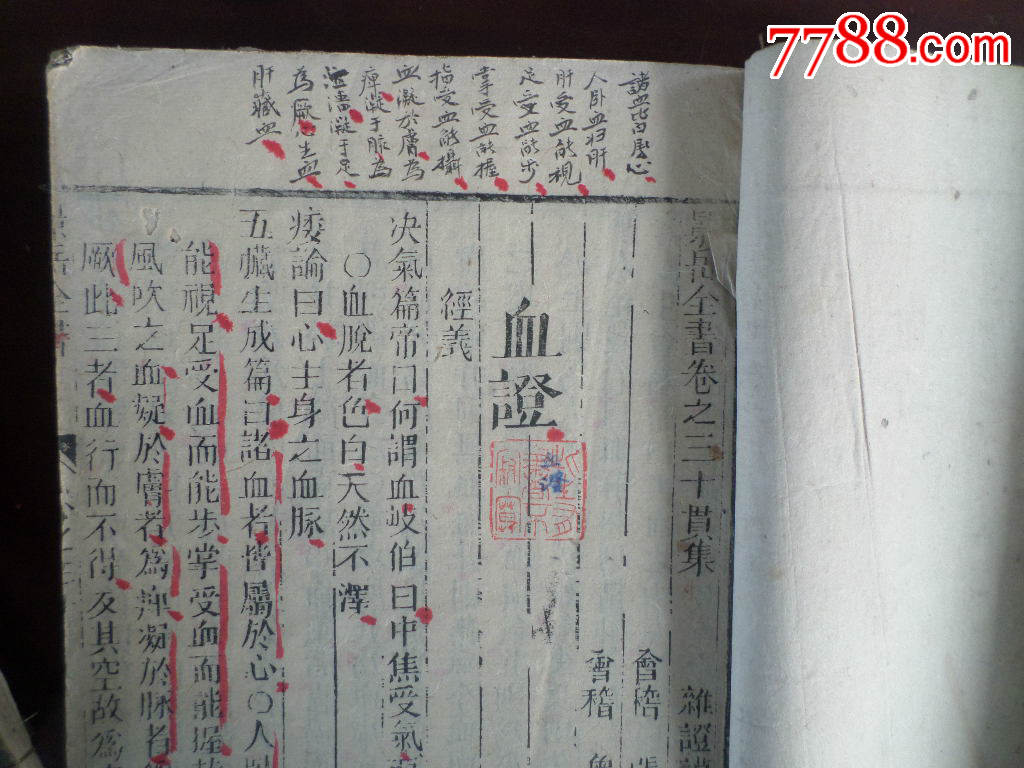 7788.com
諸血皆屬心
人卧血归肝
肝受血能視
足受血能步
掌受血能握
指受血能攝
血凝於膚為
痺凝于脉為
凝于足
為厥心生血
肝藏血
景岳全書卷之三十貫集 雜證
會稽
會稽 魯
血證
經義
决氣篇帝曰何謂血岐伯曰中焦受氣
○血脫者色白夭然不澤
痿論曰心主身之血脉
五臟生成篇曰諸血者皆屬於心○人卧
能視足受血而能步掌受血而能握
風吹之血凝於膚者為痺凝於脉者
厥此三者血行而不得反其空故為
景岳全書